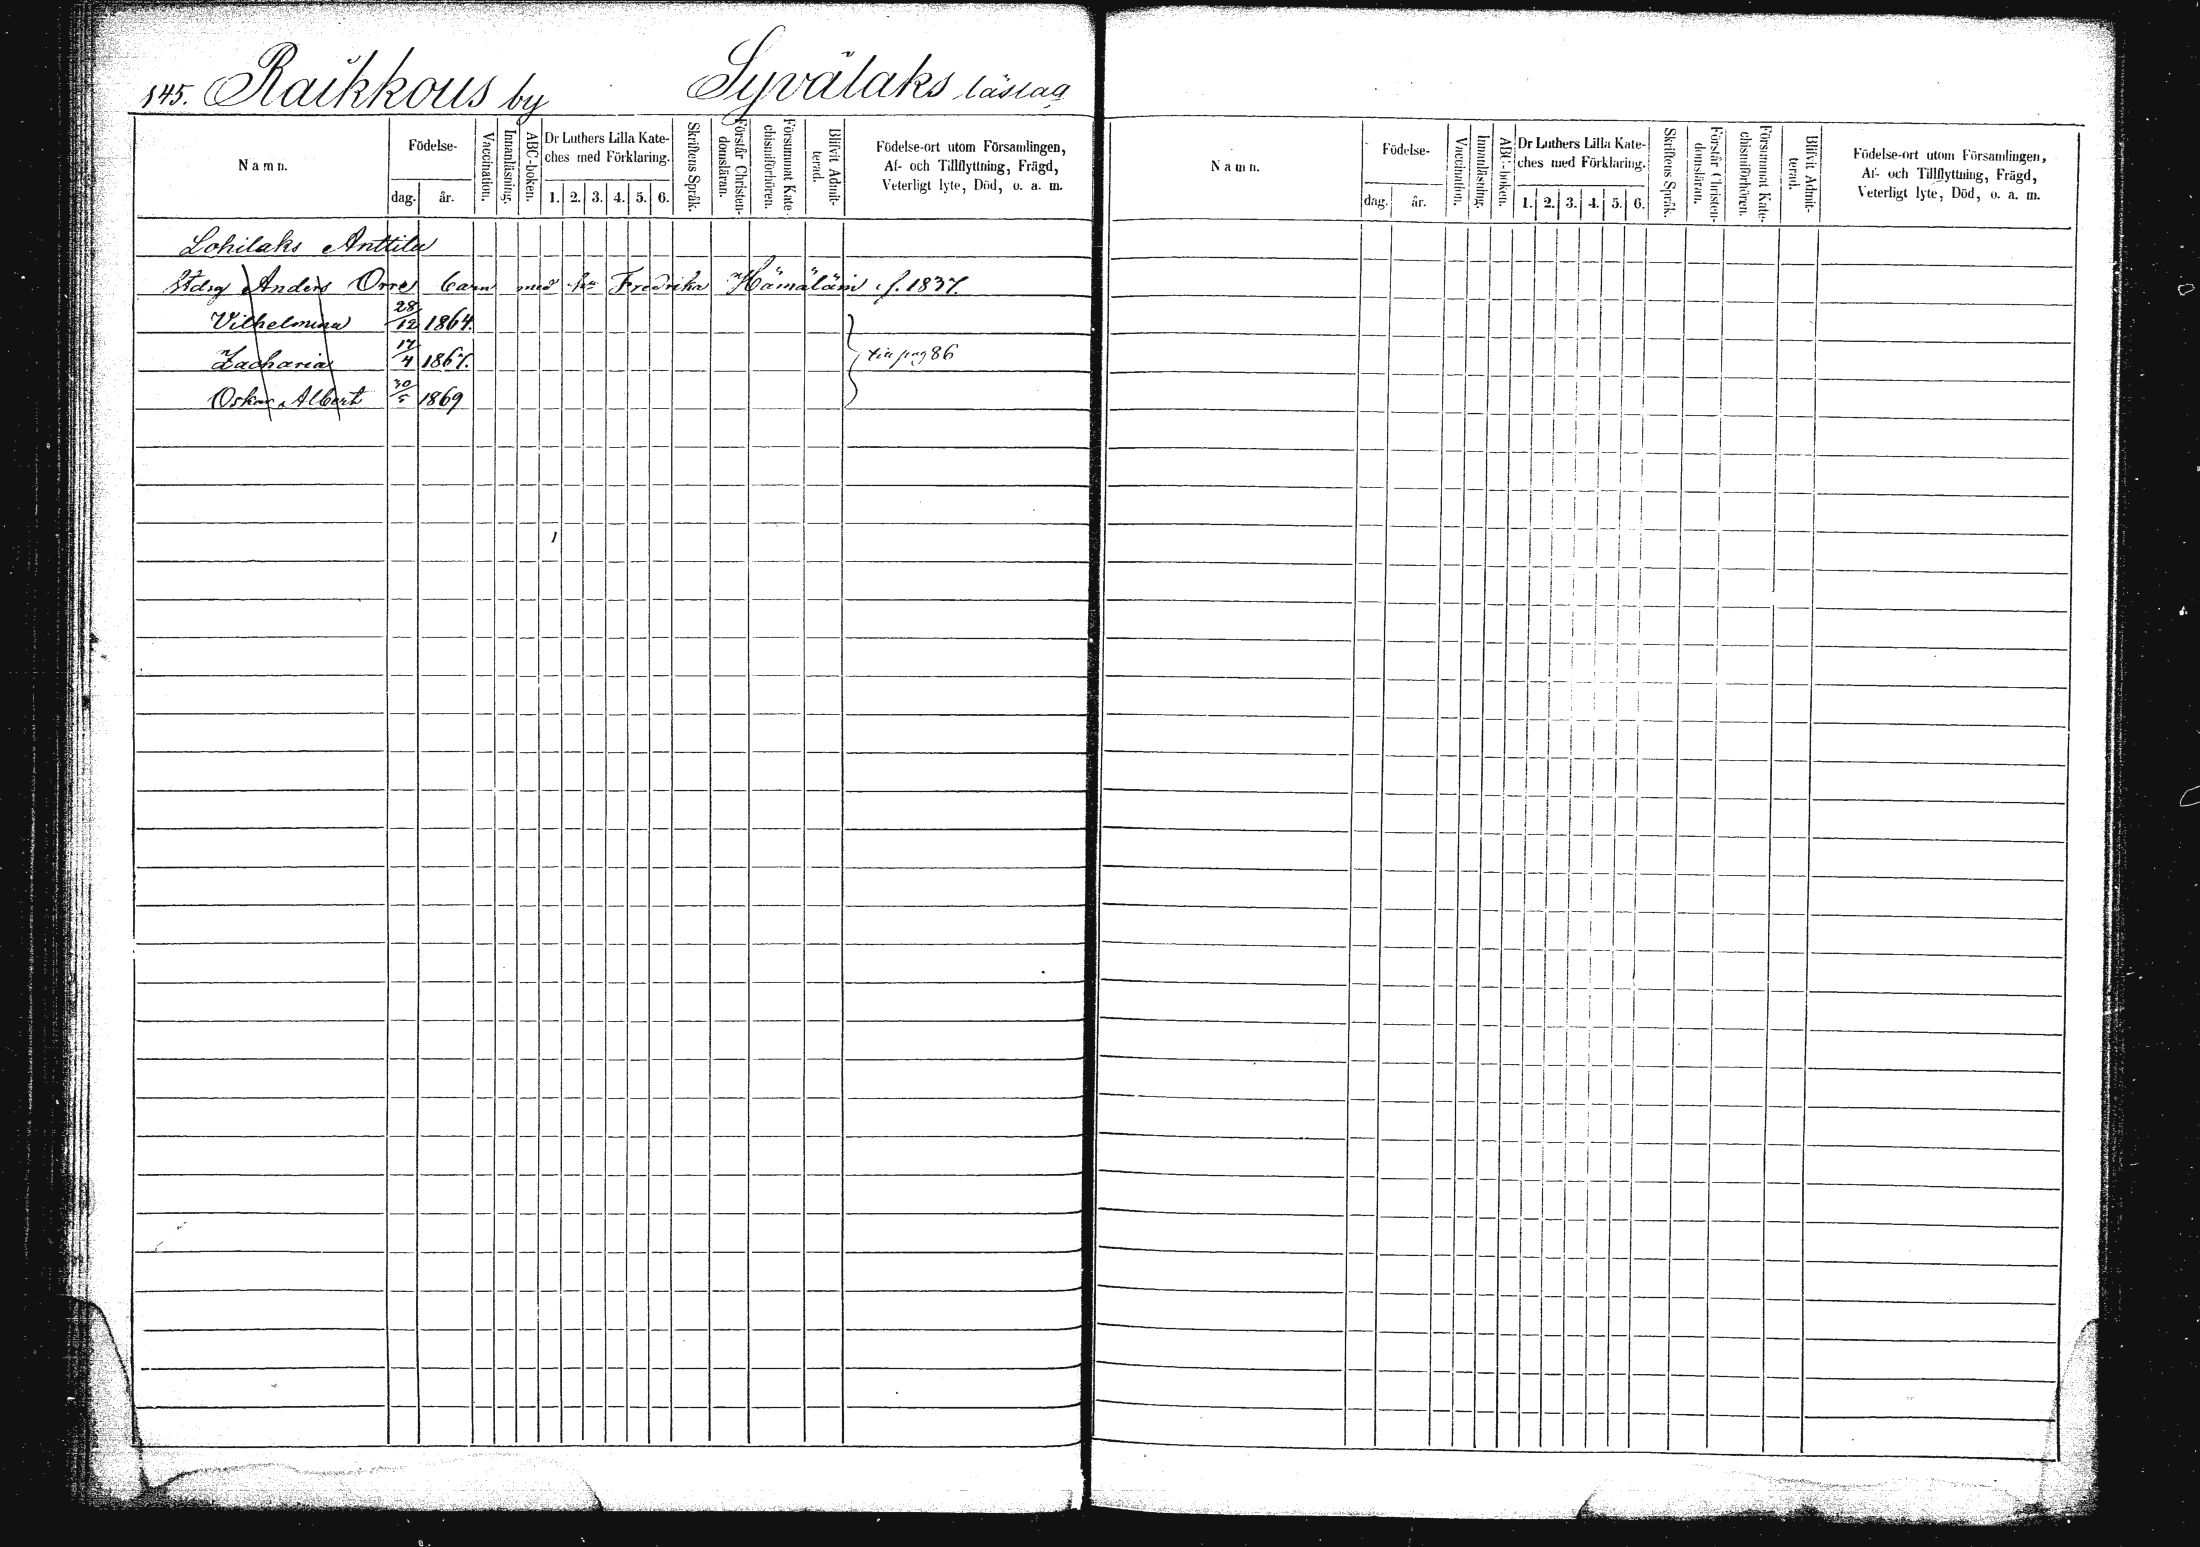 145. Raikkous by Syvälaks läslag
Namn.
Födelse-
dag. år.
Vaccination.
Innanläsning.
ABC-boken.
Dr Luthers Lilla Kate-
ches med Förklaring.
1. 2. 3. 4. 5. 6.
Skriftens Språk.
Förstår Christen-
domsläran.
Försummat Kate-
chismiförhören.
Blifvit Admit-
terad.
Födelse-ort utom Församlingen,
Af- och Tillflyttning, Frägd,
Veterligt lyte, Död, o. a. m.
Lohilaks Anttila
Anders Orres barn med Fredrika Hämäläin f. 1837.
Vilhelmina 28/12 1864.
Zacharia 17/4 1867. till pag 86
Oskar Albert 30/5 1869
1
Namn.
Födelse-
dag. år.
Vaccination.
Innanläsning.
ABC-boken.
Dr Luthers Lilla Kate-
ches med Förklaring.
1. 2. 3. 4. 5. 6.
Skriftens Språk.
Förstår Christen-
domsläran.
Försummat Kate-
chismiförhören.
Blifvit Admit-
terad.
Födelse-ort utom Församlingen,
Af- och Tillflyttning, Frägd,
Veterligt lyte, Död, o. a. m.